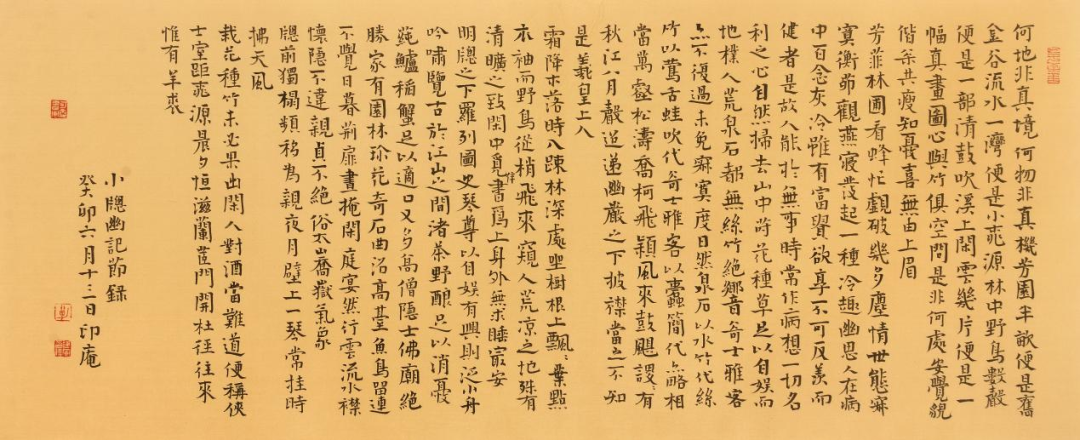 何地非真境何物非真機芳園半畝便是舊
金谷流水一灣便是小桃源林中野鳥數聲
便是一部清鼓吹溪上閑雲幾片便是一
幅真畫圖心與竹俱空問是非何處安覺貌
偕松共瘦知憂喜無由上眉
芳菲林圃看蜂忙覷破幾多塵情世態寂
寞衡茆觀燕寢發起一種冷趣幽思人在病
中百念灰冷雖有富貴欲享不可反羨而
健者是故人能於無事時常作病想一切名
利之心自然掃去山中蒔花種草足以自娛而
地樸人荒泉石都無絲竹絕響奇士雅客
亦不復過未免寂寞度日然泉石以水竹代絲
竹以鶯舌蛙吹代奇士雅客以蠹簡代亦略相
當萬壑松濤喬柯飛穎風來鼓颶謖有
秋江八月聲迢遞幽巖之下披襟當之不知
是羲皇上人
霜降木落時入疎林深處坐樹根上飄〻葉點
衣袖而野鳥從梢飛來窺人荒凉之地殊有
清曠之致閑中覓伴書爲上身外無求睡最安
明牕之下羅列圖史琴尊以自娛有興則泛小舟
吟嘯覽古於江山之間渚茶野釀足以消憂
蓴鱸稻蟹足以適口又多高僧隱士佛廟絕
勝家有園林珍花奇石曲沼高臺魚鳥留連
不覺日暮荊扉晝掩閑庭宴然行雲流水襟
懷隱不違親貞不絕俗太山喬嶽氣象
牕前獨榻頻移為親夜月壁上一琴常挂時
拂天風
栽花種竹未必果出閑人對酒當難道便稱俠
士室距桃源晨夕恒滋蘭茝門開杜徑往來
惟有羊求
小牕幽記節錄
癸卯六月十三日印庵